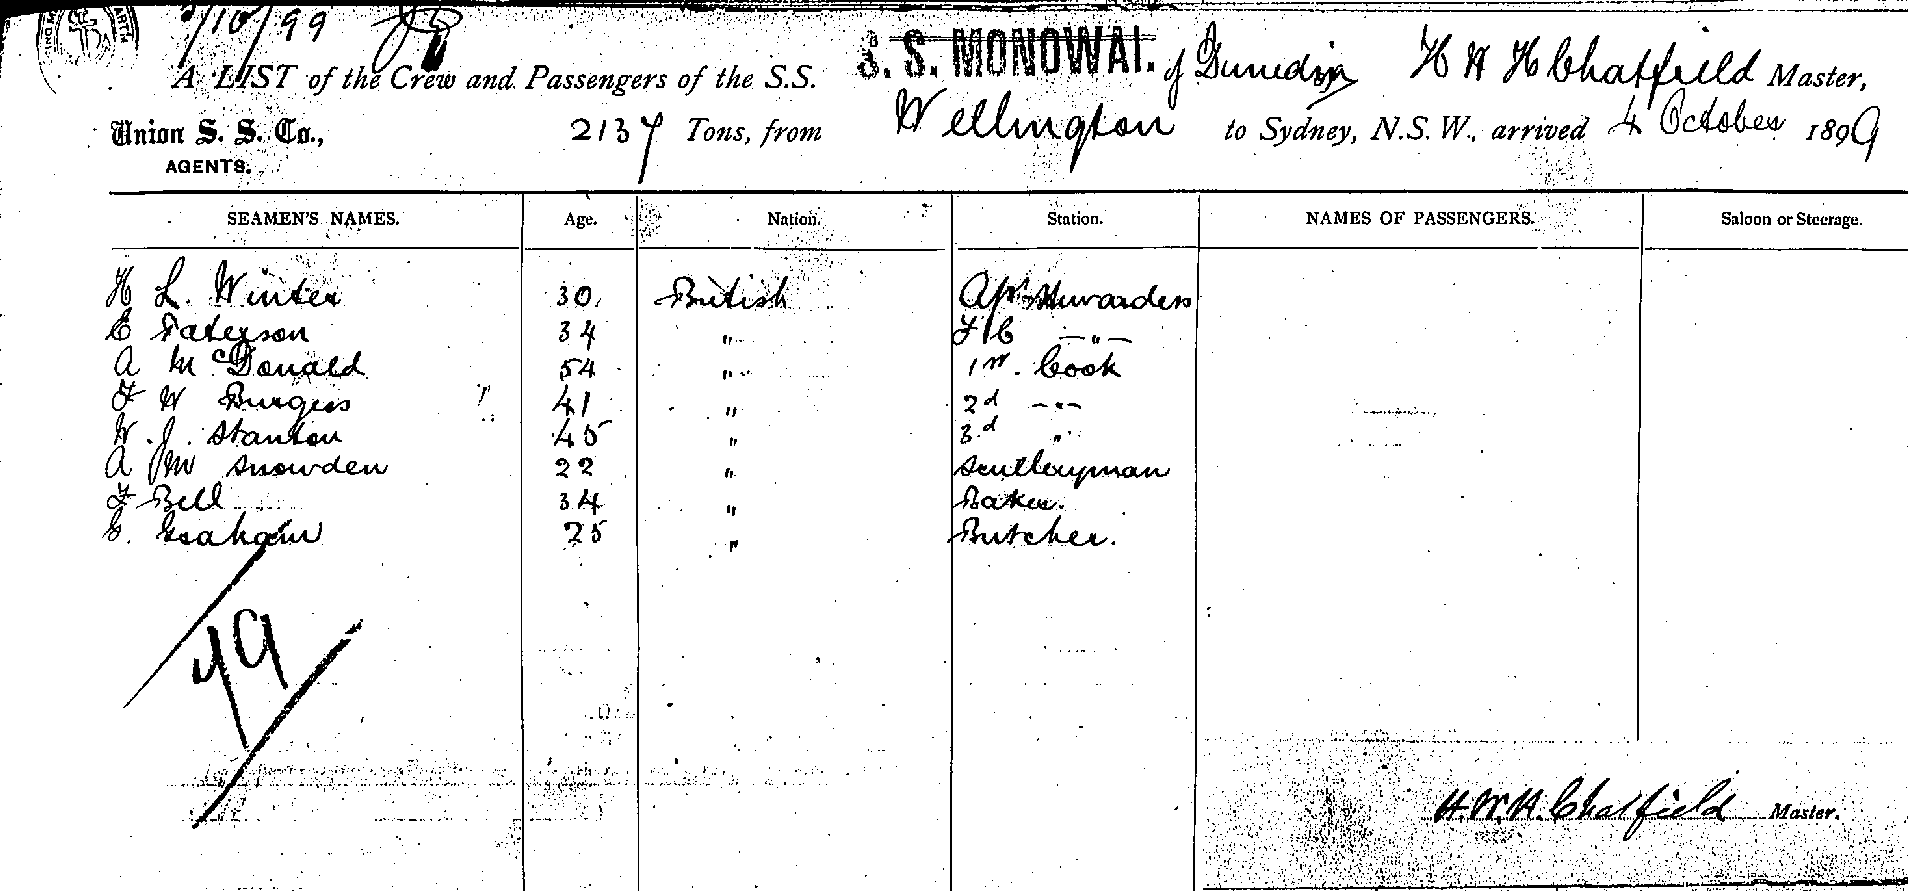 3/10/99
A LIST of the Crew and Passengers of the S.S. S. S. MONOWAI. of Dunedin H W H Chatfield Master,
Union S. S. Co., AGENTS. 2137 Tons, from Wellington to Sydney, N.S.W., arrived 4 October 1899
SEAMEN'S NAMES. Age. Nation. Station. NAMES OF PASSENGERS. Saloon or Steerage.
H L. Winter 30 British Stewardess
E Paterson 34 " F C "
A McDonald 54 " 1st. Cook
F W Burgess 41 " 2d "
W. J. Stanton 45 " 3d "
A Snowden 22 " Sculleryman
F Bell 34 " Baker.
G. Graham 25 " Butcher.
79
H.W.H. Chatfield Master.